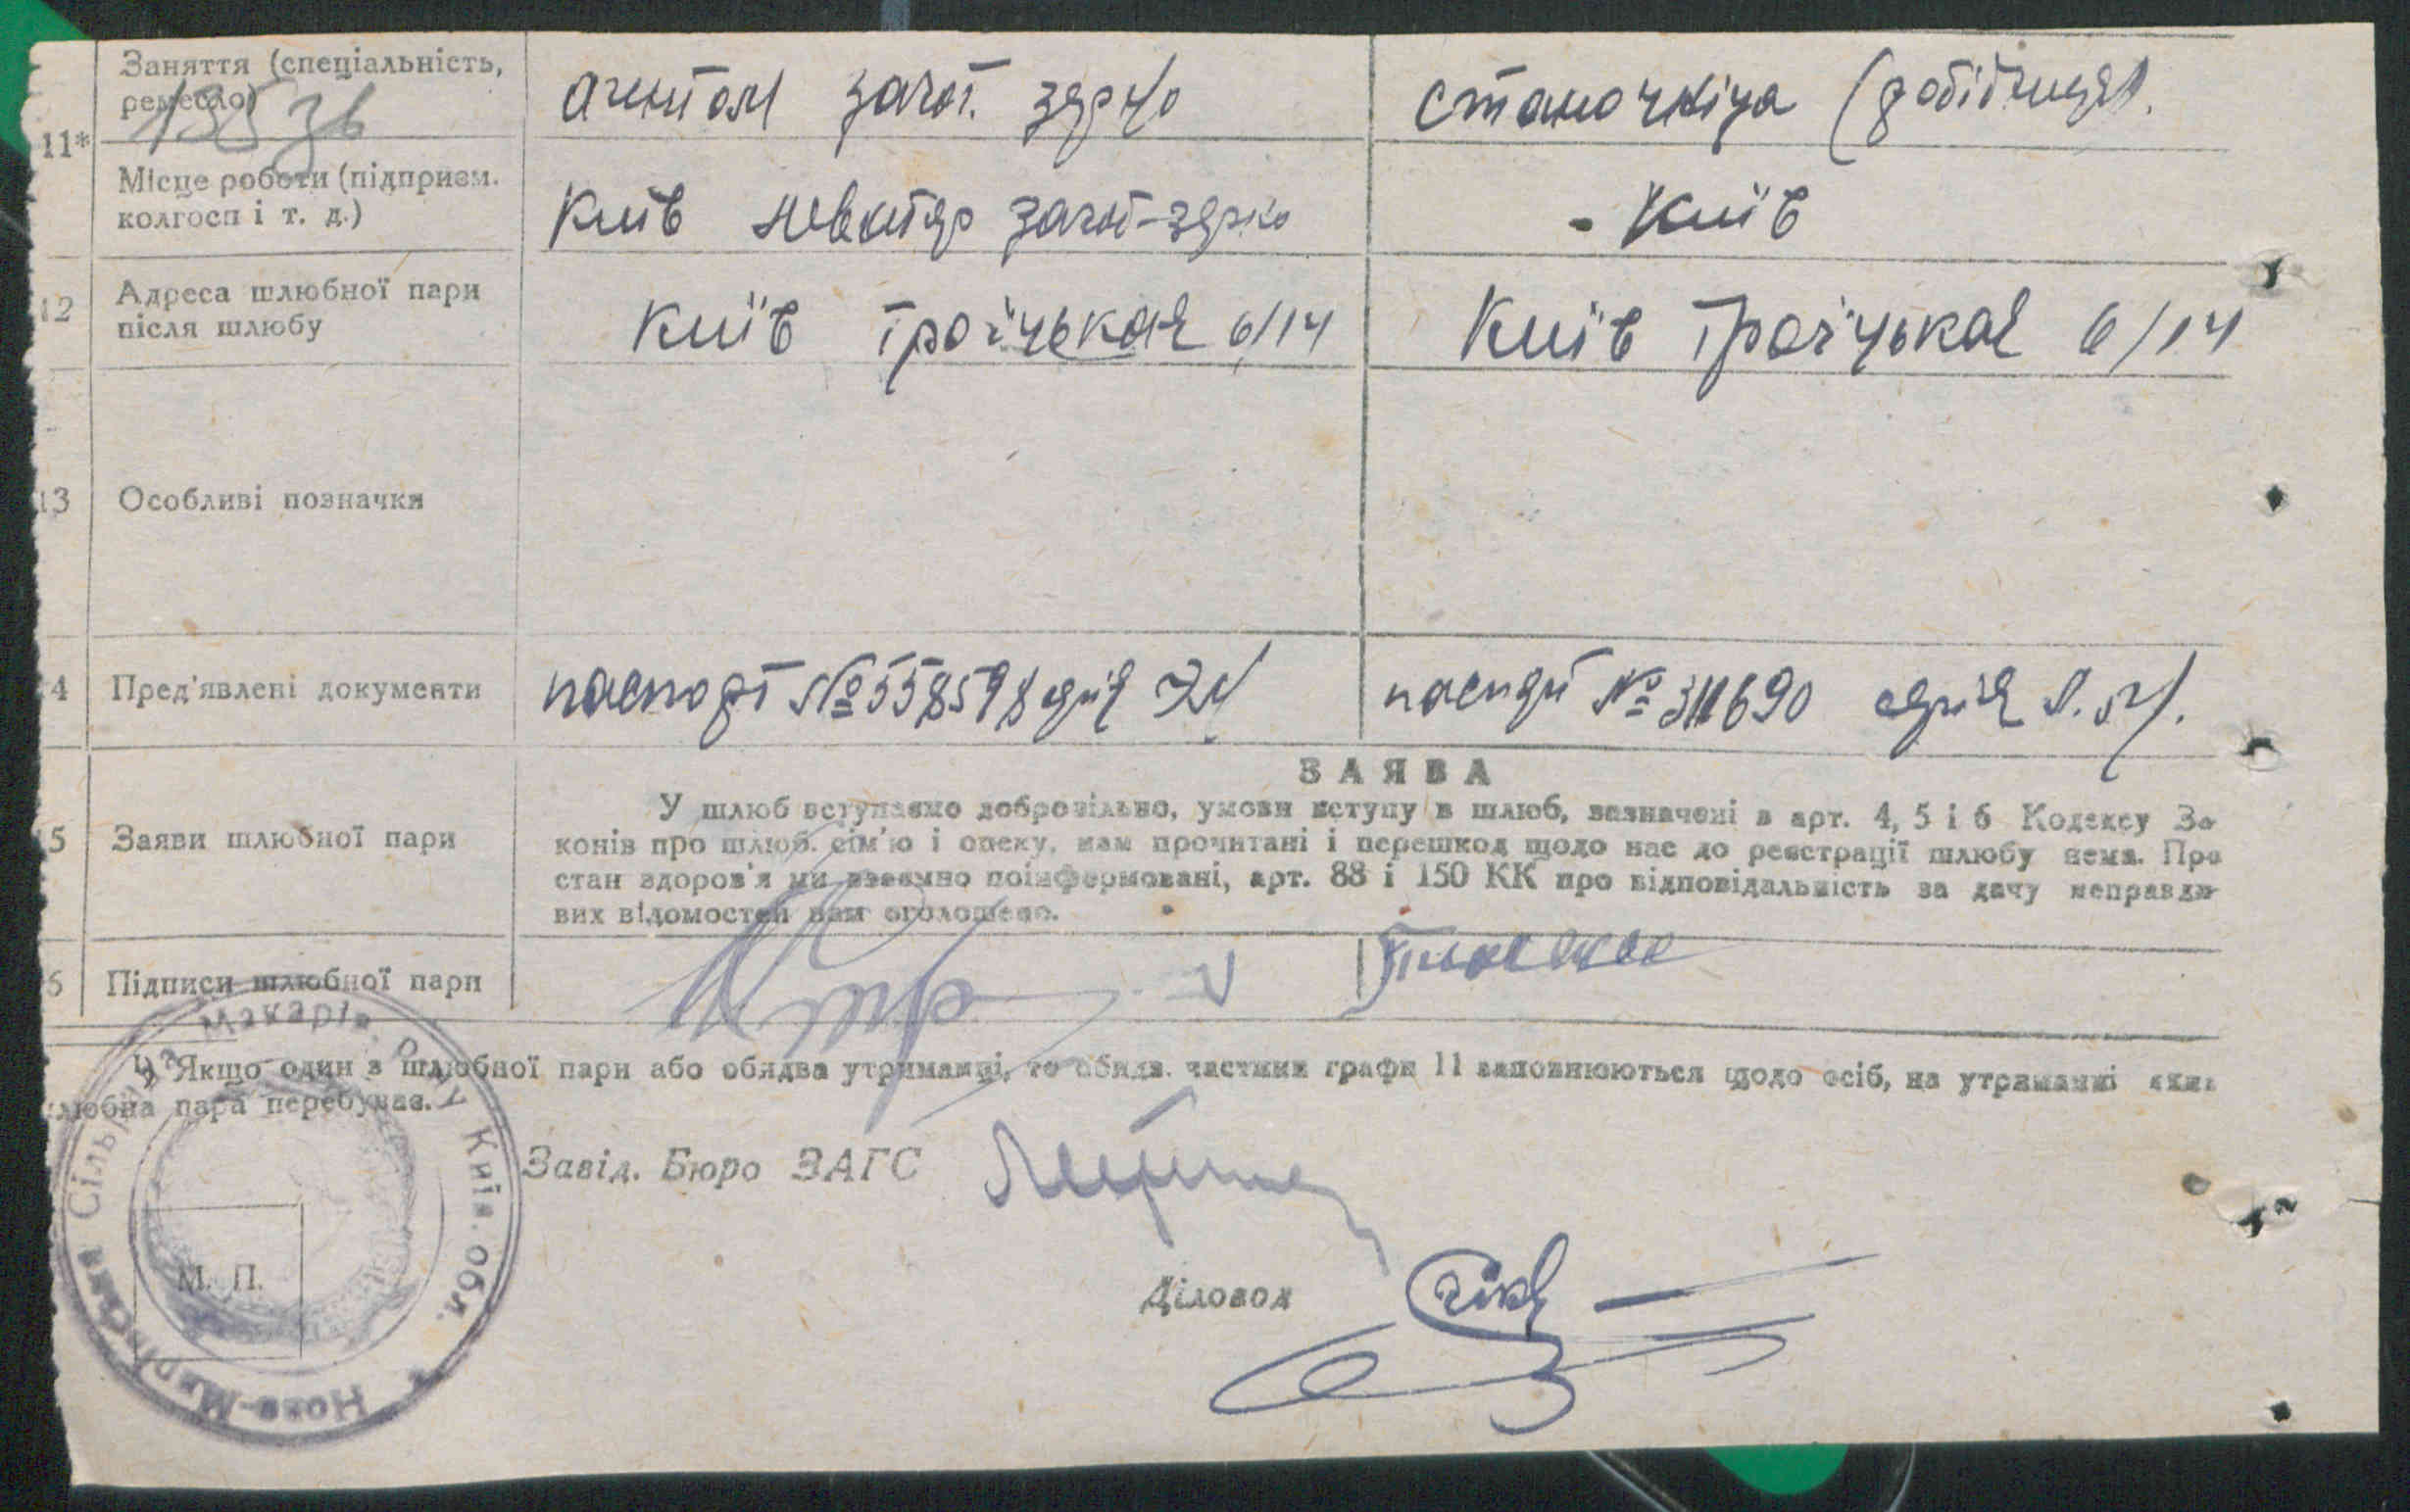 11* Заняття (спеціальність, ремесло) агентом загот. зерно станочніца (робітниця).
Місце роботи (підприєм. колгосп і т. д.) Київ загот-зерно - Київ
12 Адреса шлюбної пари після шлюбу Київ Троїцькая 6/14 Київ Троїцькая 6/14
13 Особливі позначки
4 Пред'явлені документи паспорт № 558598 серія паспорт № 311690 серія
ЗАЯВА
5 Заяви шлюбної пари
У шлюб вступаємо добровільно, умови вступу в шлюб, зазначені в арт. 4, 5 і 6 Кодексу За-
конів про шлюб. сім'ю і опеку, нам прочитані і перешкод щодо нас до реєстрації шлюбу нема. Про
стан здоров'я ми взаємно поінформовані, арт. 88 і 150 КК про відповідальність за дачу неправди-
вих відомостей нам оголошено.
6 Підписи шлюбної пари
*) Якщо один з шлюбної пари або обидва утриманці, то обидв. частини графи 11 заповнюються щодо осіб, на утриманні яких
шлюбна пара перебуває.
Завід. Бюро ЗАГС
Діловод
М. П.
Сільрада Макарів. р-ну Київ. обл.